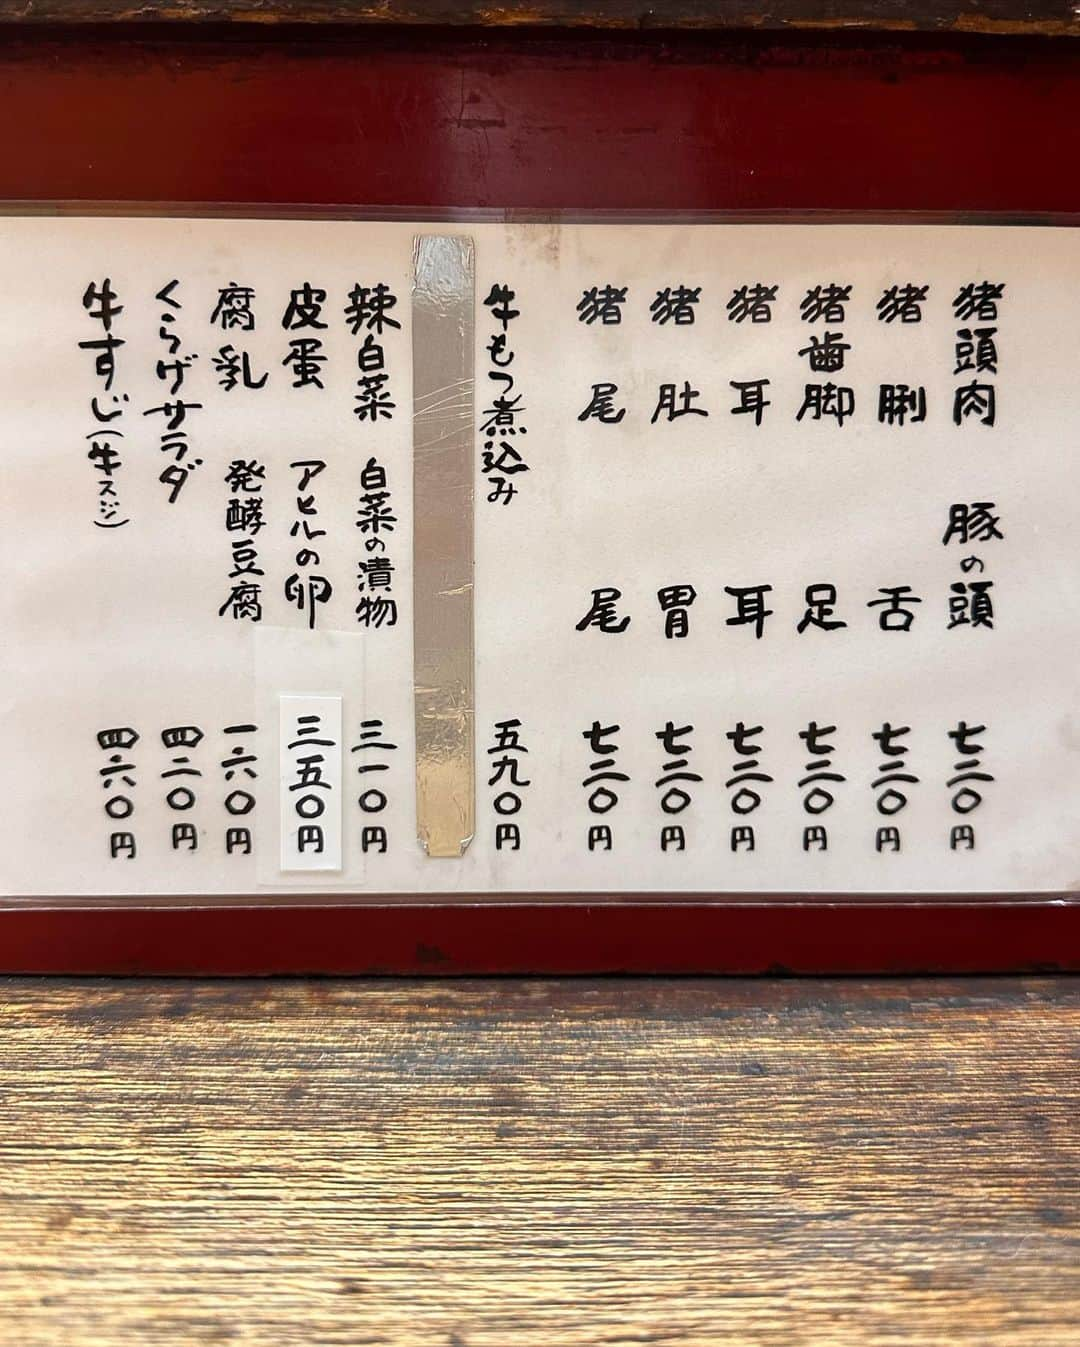 猪頭肉 豚の頭 七二〇円
猪脷 舌 七二〇円
猪歯脚 足 七二〇円
猪耳 耳 七二〇円
猪肚 胃 七二〇円
猪尾 尾 七二〇円
牛もつ煮込み 五九〇円
辣白菜 白菜の漬物 三一〇円
皮蛋 アヒルの卵 三五〇円
腐乳 発酵豆腐 一六〇円
くらげサラダ 四二〇円
牛すじ(牛スジ) 四六〇円